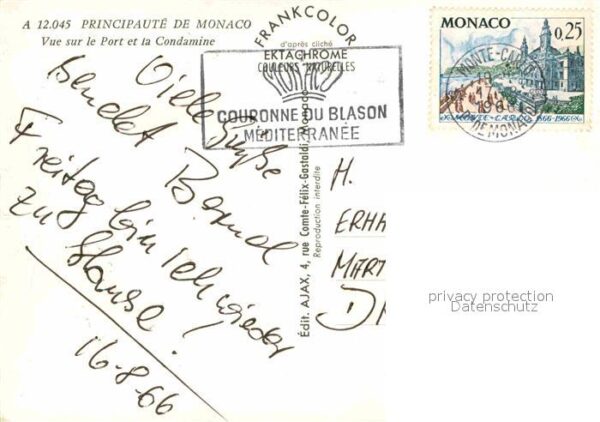 A 12.045 PRINCIPAUTÉ DE MONACO
Vue sur le Port et la Condamine
Viele Grüße
sendet Bernd
Freitag bin ich wieder
zu Hause!
16-8-66
FRANKCOLOR
d'après cliché
EKTACHROME
COULEURS NATURELLES
MONACO
COURONNE DU BLASON
MÉDITERRANÉE
Édit. AJAX, 4, rue Comte-Félix-Gastaldi, Monaco
Reproduction interdite
MONACO 0,25
MONTE-CARLO 1866-1966
MONTE-CA
19
17
196
DE MONA
H.
ERHA
MART
D
privacy protection
Datenschutz